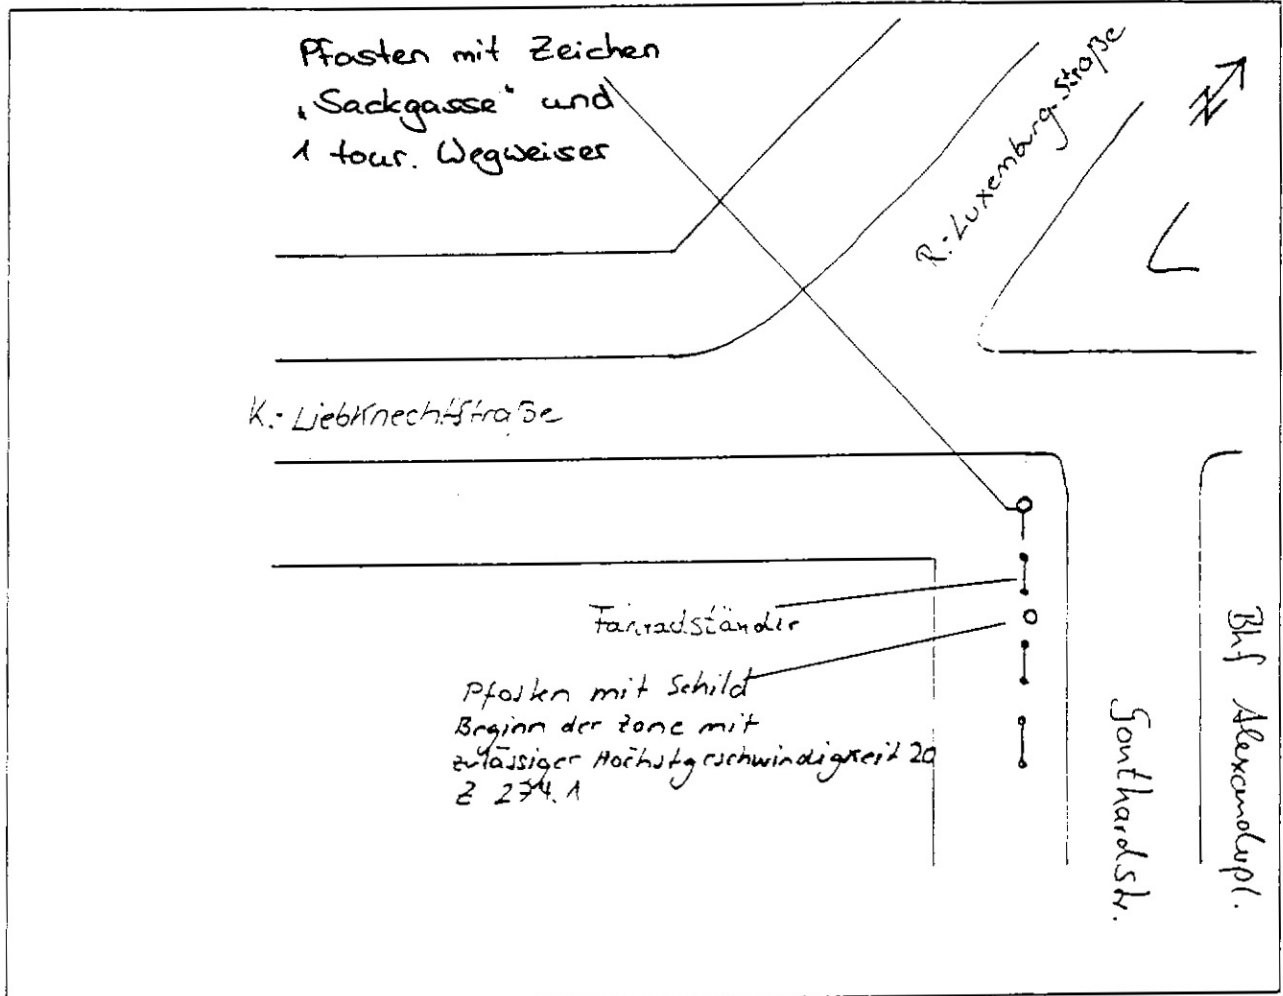 Pfosten mit Zeichen
„Sackgasse“ und
1 tour. Wegweiser
R.-Luxemburg-Straße
N
K.-Liebknechtstraße
Fahrradständer
Pfosten mit Schild
Beginn der Zone mit
zulässiger Höchstgeschwindigkeit 20
Z 274.1
Gonthardstr.
Bhf Alexanderpl.